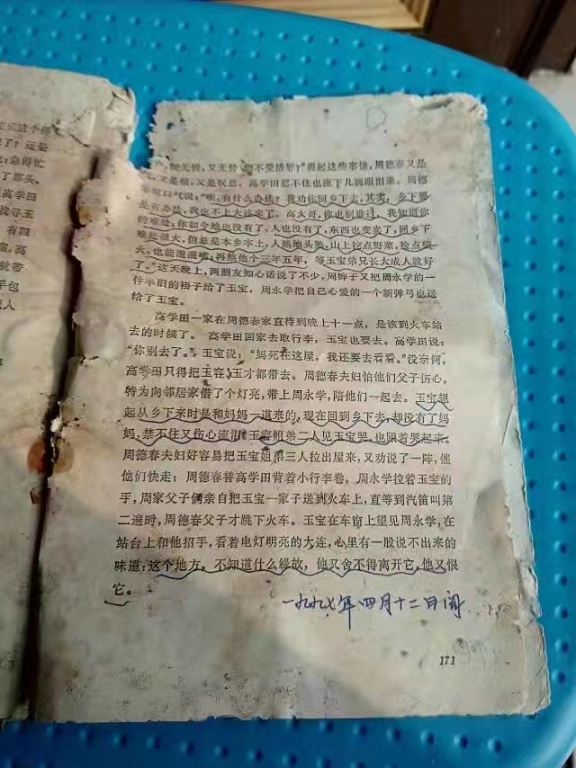 变成这个得
了?还是
急得忙
了那头。
高学田
找寻玉
,有四
富,高
就带
手包
无人
又无倚,又无靠,能不受活罪?”提起这些事情,周德春又是
又是恨,又是叹息。高学田忍不住也流下几滴眼泪来。周德
春叹口气说:“唉,有什么办法?我劝你回乡下去,其实,乡下要
是有办法,我也不上大连来了。高大哥,你也别难过,我知道你
的难处,你如今地也没有了,人也没有了,东西也变卖了,回乡下
难处很大,但总是本乡本土,人熟地头熟,山上拉点野菜,捡点柴
火,也能混混嘴,再熬他个三年五年,等玉宝弟兄长大成人就好
了。”这天晚上,两朋友知心话说了不少,周婶子又把周永学的一
件半旧的褂子给了玉宝。周永学把自己心爱的一个新弹弓也送
给了玉宝。
高学田一家在周德春家直待到晚上十一点,是该到火车站
去的时候了。高学田回家去取行李,玉宝也要去。高学田说:
“你别去了。”玉宝说:“妈死在这屋,我还要去看看。”没奈何,
高学田只得把玉容、玉才都带去。周德春夫妇怕他们父子伤心,
特为向邻居家借了个灯亮,带上周永学,陪他们一起去。玉宝想
起从乡下来时是和妈妈一道来的,现在回到乡下去,却没有了妈
妈,禁不住又伤心流泪。玉容姐弟二人见玉宝哭,也跟着哭起来。
周德春夫妇好容易把玉宝姐弟三人拉出屋来,又劝说了一阵,催
他们快走;周德春替高学田背着小行李卷,周永学拉着玉宝的
手,周家父子俩亲自把玉宝一家子送到火车上,直等到汽笛叫第
二遍时,周德春父子才跳下火车。玉宝在车窗上望见周永学,在
站台上和他招手,看着电灯明亮的大连,心里有一股说不出来的
味道:这个地方,不知道什么缘故,他又舍不得离开它,他又恨
它。
一九九七年四月十二日阅
171